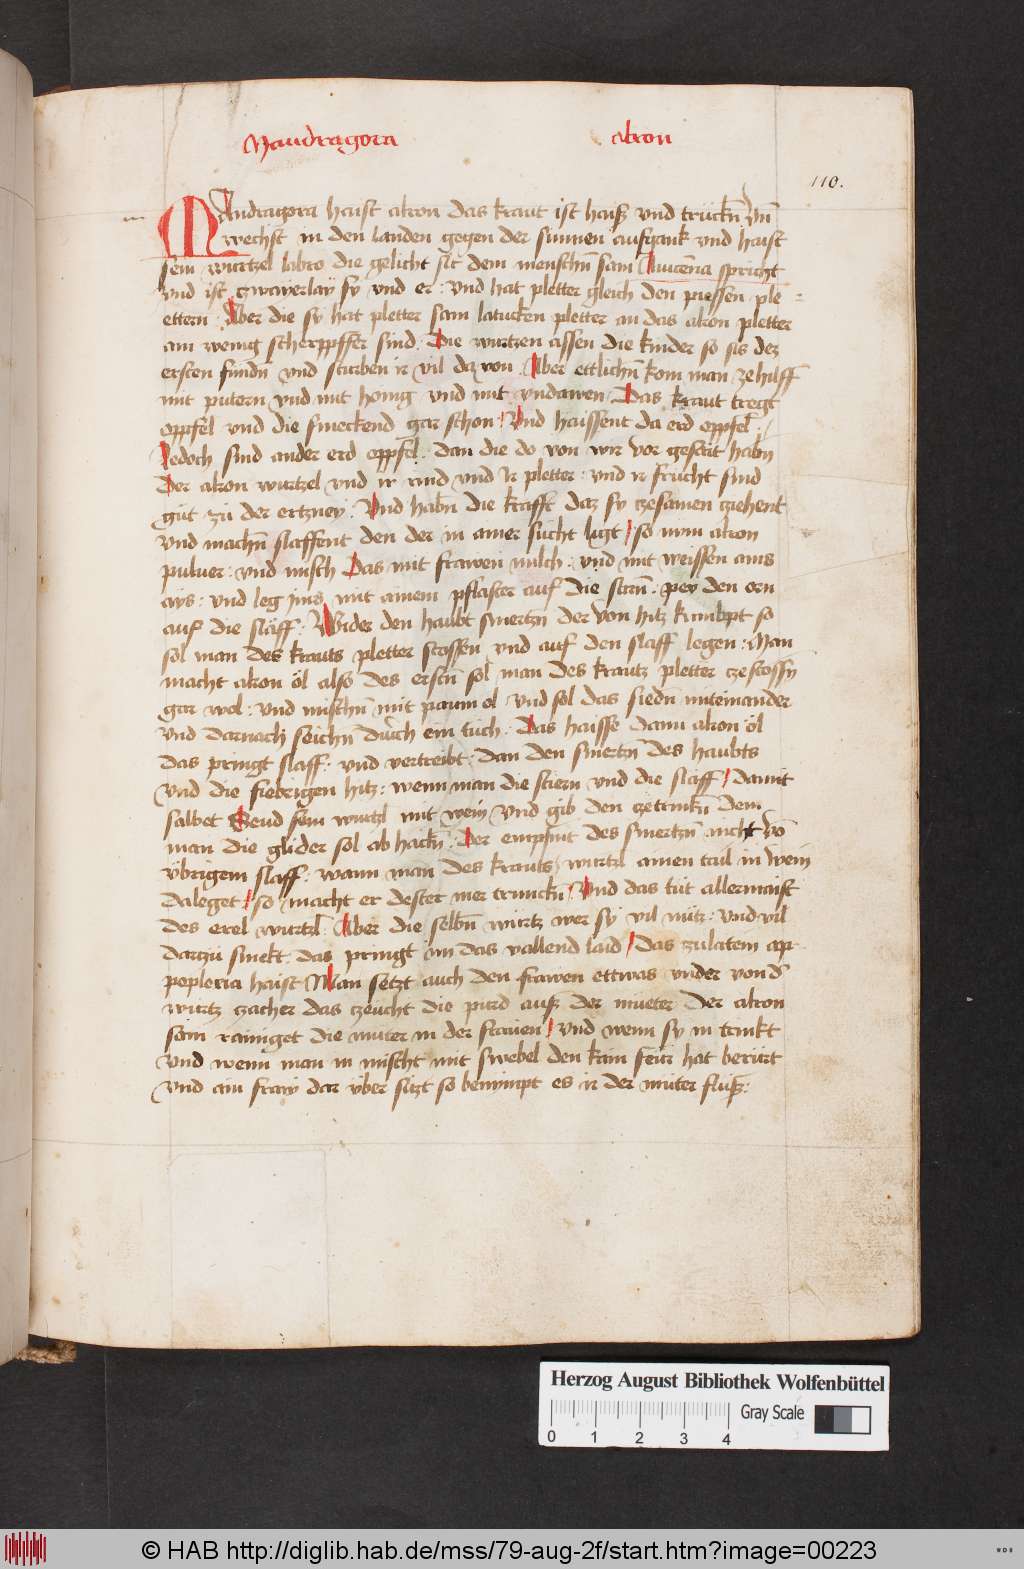 Mandragora alron
110.
MAndragora haist alron das kraut ist haiß vnd trückñ vñ
wechst in den landen gegen der sunnen aufgank vnd haist
sein wurtzel labro die gelicht sit dem menschñ sam Auicena spricht
vnd ist czwayerlay sy vnd er : vnd hat pletter gleich den piessen ple
ettern : Aber die sy hat pletter sam latucken pletter an das alron pletter
ain wenig scherppffer sind : Die wurtzen assen die kinder so sis dez
ersten fundñ vnd sturben ir vil da von . Aber ettlichñ kom man ze hilff
mit putern vnd mit honig vnd mit vndawen . Das kraut tregt
oppfel vnd die smeckend gar schon / Vnd haissent da erd oppfel :
Jedoch sind ander erd oppfel : dan die do von wir vor geseit habñ
Der alron wurtzel vnd ir rind vnd Ir pletter : vnd ir frucht sind
güt zü der ertzney : Vnd habñ die krafft daz sy czesamen cziehent
vnd machñ slaffent den der in ainer sücht ligt / so nym alron
puluer : vnd misch Das mit frawen milch : vnd mit weissen ains
ays : vnd leg jms mit ainem pflaster auf die stirñ : pey den orn
auf die släff : Wider den haubt smertzñ der von hitz kumbpt so
sol man des krauts pletter stossen vnd auf den slaff legen : Man
macht alron öl also des erstñ sol man des krautz pletter czestossñ
gar wol : vnd mischñ mit paum öl vnd sol das siedñ miteinander
vnd darnach seichñ durch ein tüch : Das haisse dann alron öl
das pringt slaff : vnd vertreibt : dan den smertzñ des haubts
vnd die fiebrigen hitz : wenn man die stiern vnd die slaff / damit
salbet Seud sein wurtzl mit wein vnd gib den czetrinkñ dem
man die glider sol ab hackñ : Der enpfint des smertzñ nicht võ
vbrigem slaff : wann man des krauts wurtzl ainen tail in wein
daleget / so macht er dester mer trunckñ / Vnd das tüt allermaist
des erel wurtzl : Aber die selbñ würtz wer sy vil nütz : vnd vil
darzü smekt das pringt im das vallend laid / das zulatein ap-
poplexia haist Man setzt auch den frawen ettwas vnder von d'
wurtz czacher das czeücht die pürd auß der mueter Der alron
sam rainiget die muter in der frauen / vnd wenn sy in trinkt
vnd wenn man in mischt mit swebel den kain feur hat berürt
vnd ain fraw dar vber sitzt so benympt es ir der müter fluß :
Herzog August Bibliothek Wolfenbüttel
Gray Scale
0 1 2 3 4
© HAB http://diglib.hab.de/mss/79-aug-2f/start.htm?image=00223